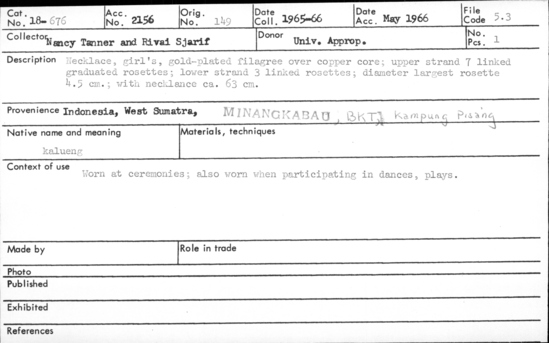 Cat. No. 18-676 Acc. No. 2156 Orig. No. 149 Date Coll. 1965-66 Date Acc. May 1966 File Code 5.3
Collector Nancy Tanner and Rivai Sjarif Donor Univ. Approp. No. Pcs. 1
Description Necklace, girl's, gold-plated filagree over copper core; upper strand 7 linked
graduated rosettes; lower strand 3 linked rosettes; diameter largest rosette
4.5 cm.; with necklance ca. 63 cm.
Provenience Indonesia, West Sumatra, MINANGKABAU, BKTJ Kampung Pisang
Native name and meaning Materials, techniques
kalueng
Context of use Worn at ceremonies; also worn when participating in dances, plays.
Made by Role in trade
Photo
Published
Exhibited
References